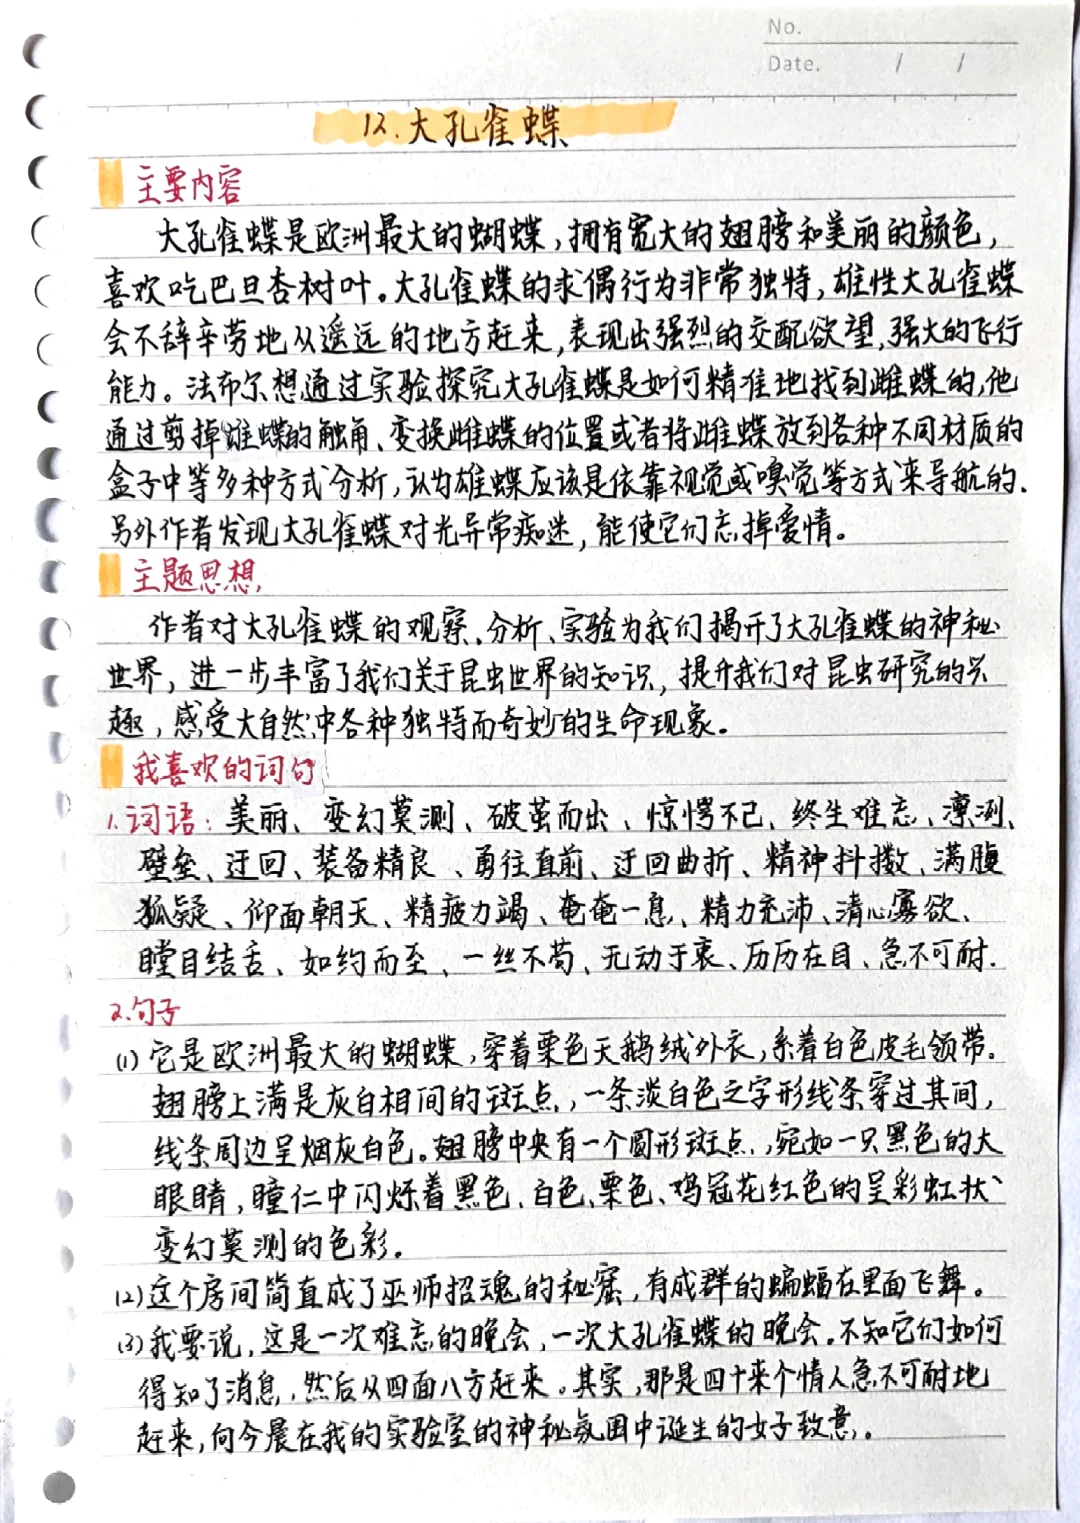 No.
Date. / /
12.大孔雀蝶
主要内容
大孔雀蝶是欧洲最大的蝴蝶,拥有宽大的翅膀和美丽的颜色,
喜欢吃巴旦杏树叶。大孔雀蝶的求偶行为非常独特,雄性大孔雀蝶
会不辞辛劳地从遥远的地方赶来,表现出强烈的交配欲望,强大的飞行
能力。法布尔想通过实验探究大孔雀蝶是如何精准地找到雌蝶的,他
通过剪掉雄蝶的触角、变换雌蝶的位置或者将雌蝶放到各种不同材质的
盒子中等多种方式分析,认为雄蝶应该是依靠视觉或嗅觉等方式来导航的.
另外作者发现大孔雀蝶对光异常痴迷,能使它们忘掉爱情。
主题思想
作者对大孔雀蝶的观察、分析、实验为我们揭开了大孔雀蝶的神秘
世界,进一步丰富了我们关于昆虫世界的知识,提升我们对昆虫研究的兴
趣,感受大自然中各种独特而奇妙的生命现象。
我喜欢的词句
1.词语:美丽、变幻莫测、破茧而出、惊愕不已、终生难忘、凛冽、
壁垒、迂回、装备精良、勇往直前、迂回曲折、精神抖擞、满腹
狐疑、仰面朝天、精疲力竭、奄奄一息、精力充沛、清心寡欲、
瞠目结舌、如约而至、一丝不苟、无动于衷、历历在目、急不可耐.
2.句子
(1)它是欧洲最大的蝴蝶,穿着栗色天鹅绒外衣,系着白色皮毛领带.
翅膀上满是灰白相间的斑点,一条淡白色之字形线条穿过其间,
线条周边呈烟灰白色。翅膀中央有一个圆形斑点,宛如一只黑色的大
眼睛,瞳仁中闪烁着黑色、白色、栗色、鸡冠花红色的呈彩虹状、
变幻莫测的色彩。
(2)这个房间简直成了巫师招魂的秘窟,有成群的蝙蝠在里面飞舞。
(3)我要说,这是一次难忘的晚会,一次大孔雀蝶的晚会。不知它们如何
得知了消息,然后从四面八方赶来。其实,那是四十来个情人急不可耐地
赶来,向今晨在我的实验室的神秘氛围中诞生的女子致意。